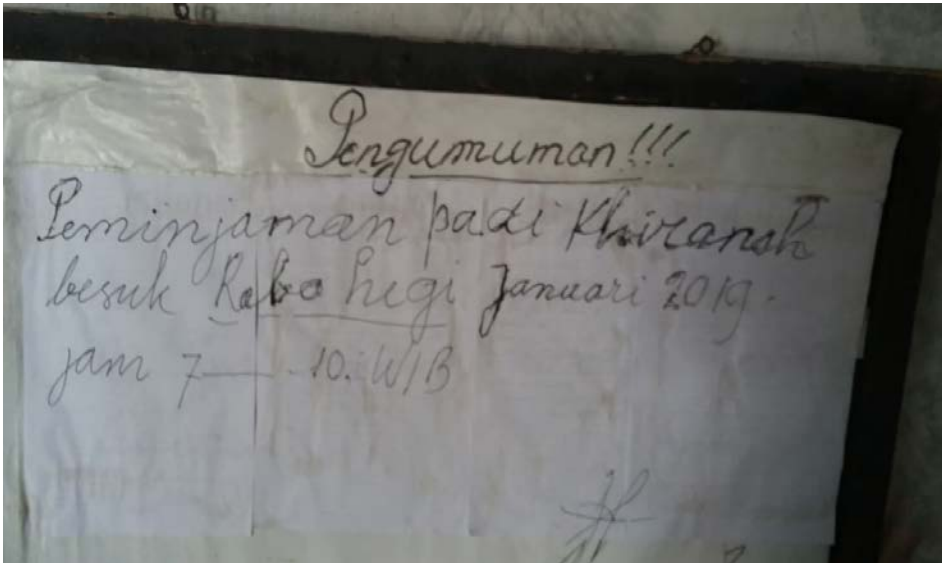 Pengumuman!!!
Peminjaman padi Khiranah
besuk Rabo hegi Januari 2019.
jam 7 — 10. WIB